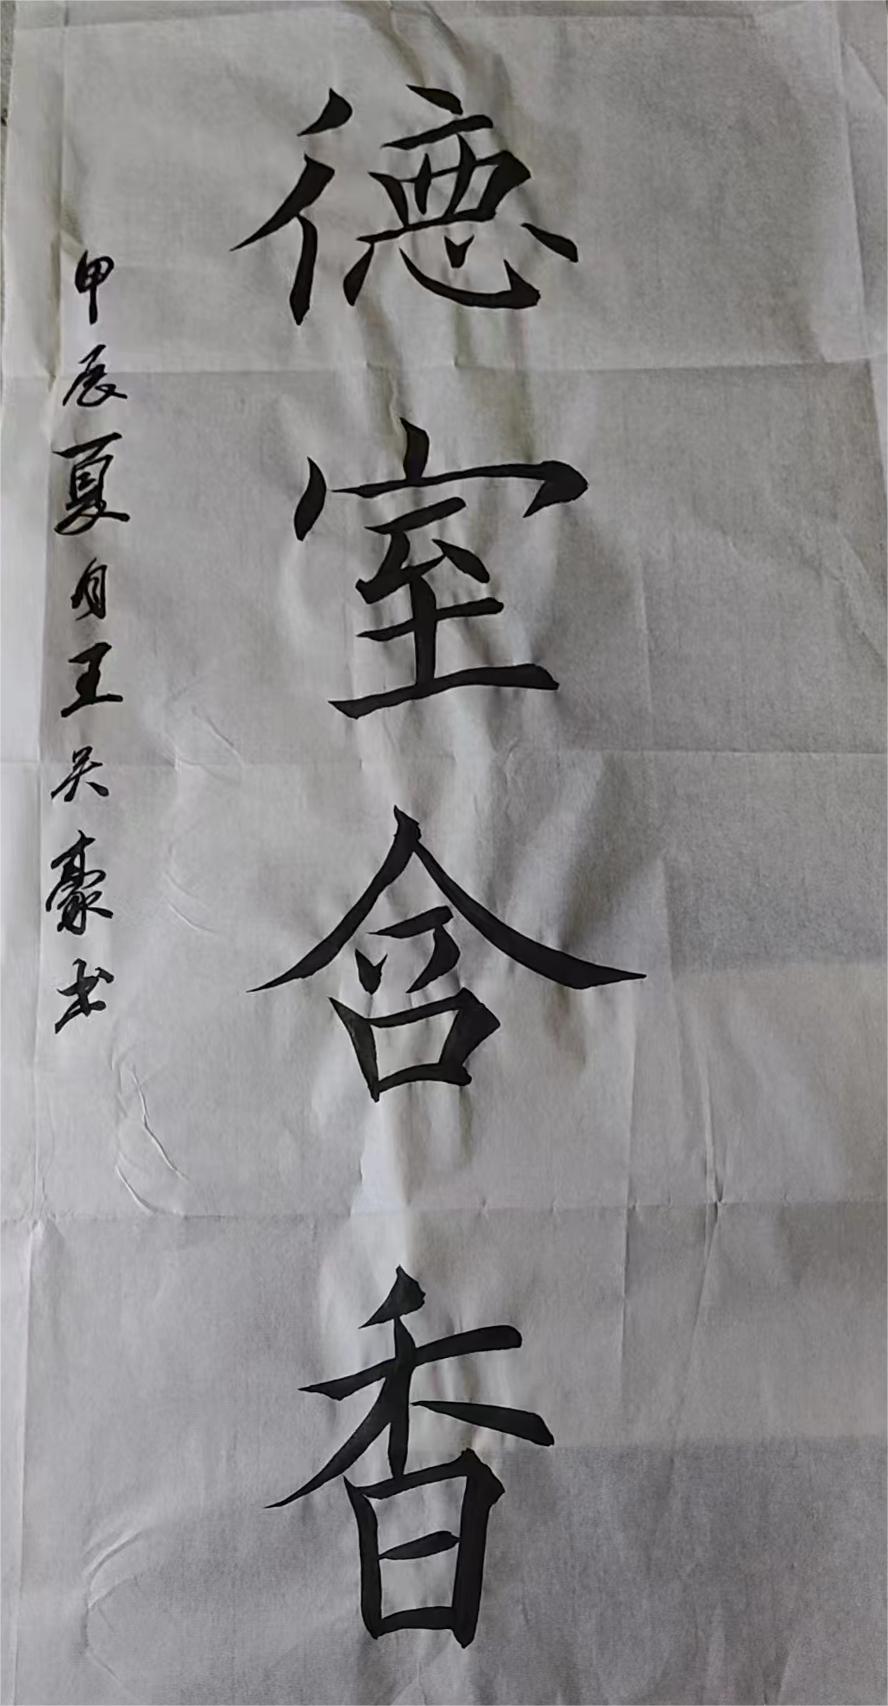 德室含香
甲辰夏月王吴豪书